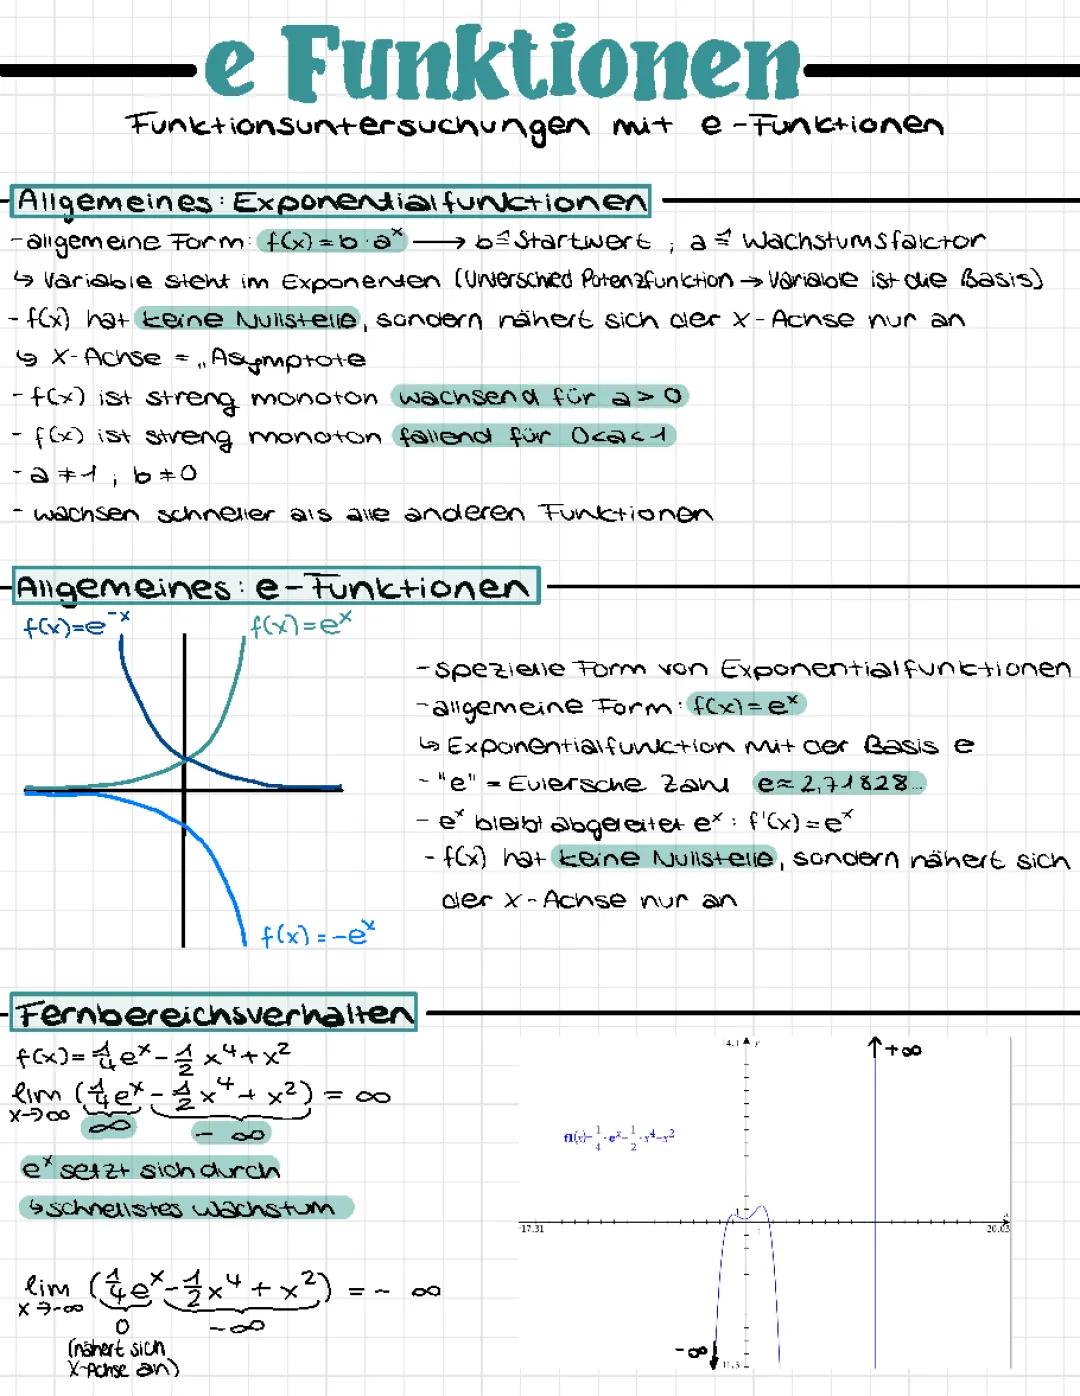 e Funktionen
Funktionsuntersuchungen mit e-Funktionen
Allgemeines: Exponentialfunktionen
- allgemeine Form: f(x) = b · a^x → b ≙ Startwert ; a ≙ Wachstumsfaktor
↳ Variable steht im Exponenten (Unterschied Potenzfunktion → Variable ist die Basis)
- f(x) hat keine Nullstelle, sondern nähert sich der x-Achse nur an
↳ X-Achse = „Asymptote
- f(x) ist streng monoton wachsend für a > 0
- f(x) ist streng monoton fallend für 0<a<1
- a ≠ 1 ; b ≠ 0
- wachsen schneller als alle anderen Funktionen
Allgemeines: e-Funktionen
f(x)=e^-x
f(x)=e^x
f(x) = -e^x
- spezielle Form von Exponentialfunktionen
- allgemeine Form: f(x) = e^x
↳ Exponentialfunktion mit der Basis e
- "e" = Eulersche Zahl e ≈ 2,71828...
- e^x bleibt abgeleitet e^x : f'(x) = e^x
- f(x) hat keine Nullstelle, sondern nähert sich
der x-Achse nur an
Fernbereichsverhalten
f(x) = 1/4 e^x - 1/2 x^4 + x^2
lim x→∞ (1/4 e^x - 1/2 x^4 + x^2) = ∞
∞ - ∞
e^x setzt sich durch
↳ schnellstes Wachstum
lim x→-∞ (1/4 e^x - 1/2 x^4 + x^2) = - ∞
0 -∞
(nähert sich
X-Achse an)
4.1 y
+∞
f1(x)=1/4·e^x-1/2·x^4-x^2
1
-17.31
1
x
20.03
-∞
11.3